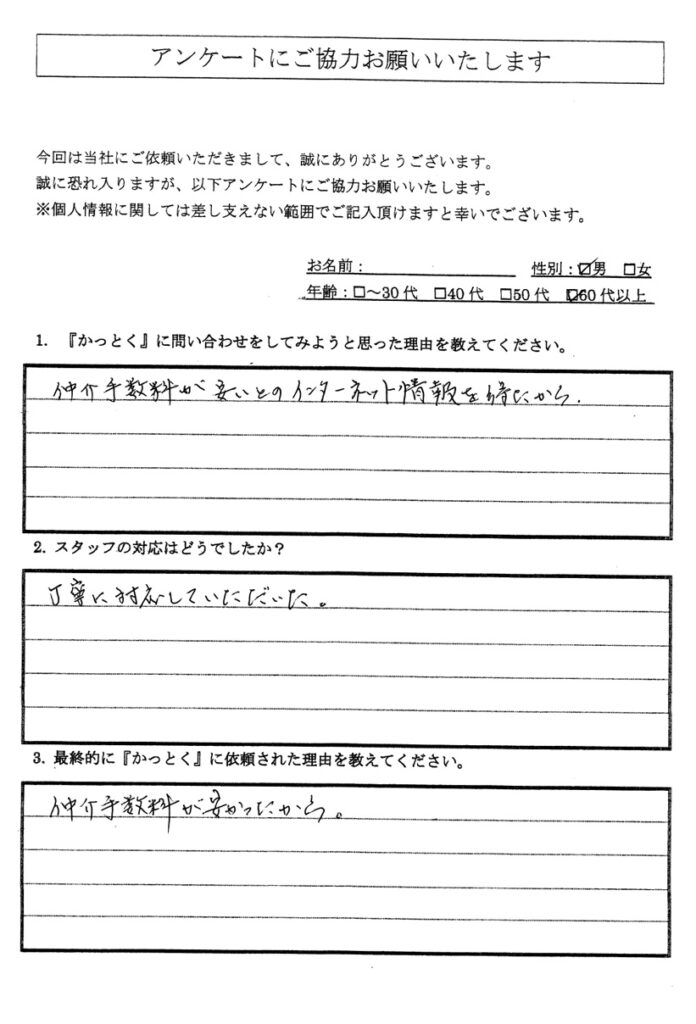 アンケートにご協力お願いいたします
今回は当社にご依頼いただきまして、誠にありがとうございます。
誠に恐れ入りますが、以下アンケートにご協力お願いいたします。
※個人情報に関しては差し支えない範囲でご記入頂けますと幸いでございます。
お名前：＿＿＿＿＿＿＿＿ 性別：☑男 □女
年齢：□～30代 □40代 □50代 ☑60代以上
1. 『かっとく』に問い合わせをしてみようと思った理由を教えてください。
仲介手数料が安いとのインターネット情報を得たから.
2. スタッフの対応はどうでしたか？
丁寧に対応していただいた。
3. 最終的に『かっとく』に依頼された理由を教えてください。
仲介手数料が安かったから。